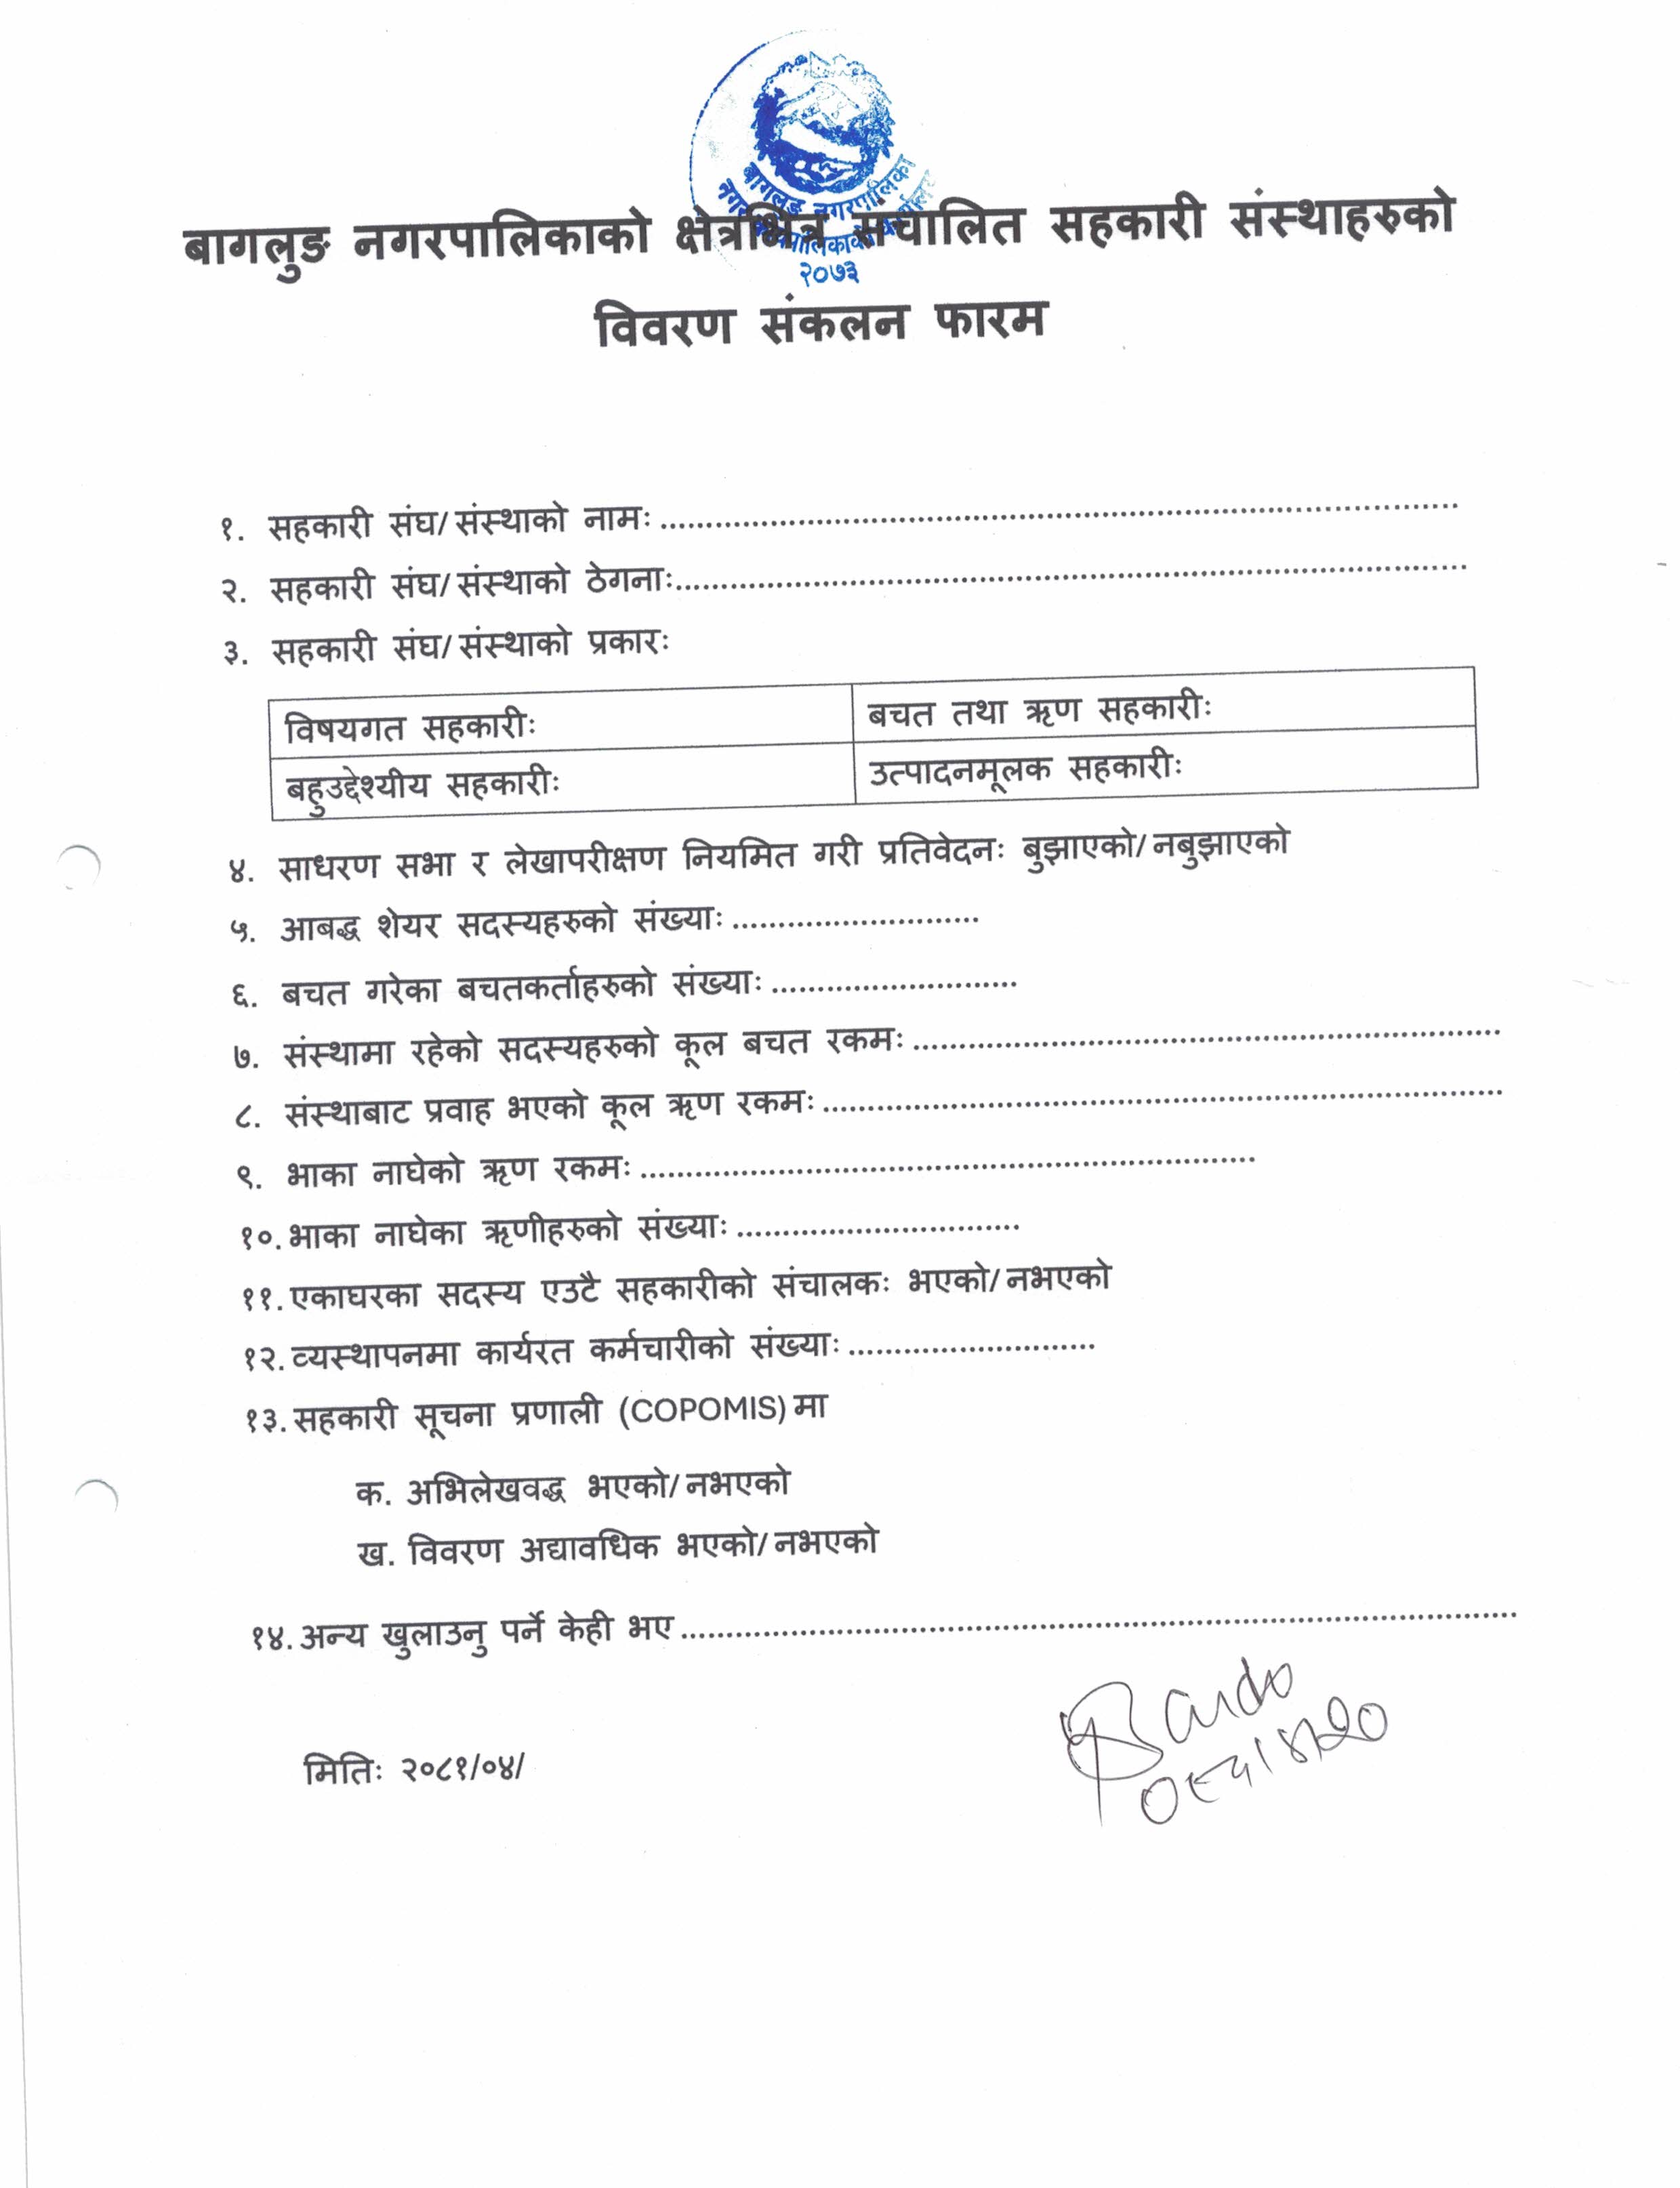 बागलुङ नगरपालिका
२०७३
बागलुङ नगरपालिकाको क्षेत्रभित्र संचालित सहकारी संस्थाहरुको
विवरण संकलन फारम
१. सहकारी संघ/संस्थाको नामः ........................................................................................
२. सहकारी संघ/संस्थाको ठेगनाः.......................................................................................
३. सहकारी संघ/संस्थाको प्रकारः
विषयगत सहकारीः बचत तथा ऋण सहकारीः
बहुउद्देश्यीय सहकारीः उत्पादनमूलक सहकारीः
४. साधरण सभा र लेखापरीक्षण नियमित गरी प्रतिवेदनः बुझाएको/नबुझाएको
५. आबद्ध शेयर सदस्यहरुको संख्याः ...........................
६. बचत गरेका बचतकर्ताहरुको संख्याः ...........................
७. संस्थामा रहेको सदस्यहरुको कूल बचत रकमः ................................................................
८. संस्थाबाट प्रवाह भएको कूल ऋण रकमः ..........................................................................
९. भाका नाघेको ऋण रकमः ...................................................................
१०. भाका नाघेका ऋणीहरुको संख्याः ...............................
११. एकाघरका सदस्य एउटै सहकारीको संचालकः भएको/नभएको
१२. व्यस्थापनमा कार्यरत कर्मचारीको संख्याः ...........................
१३. सहकारी सूचना प्रणाली (COPOMIS) मा
क. अभिलेखवद्ध भएको/नभएको
ख. विवरण अद्यावधिक भएको/नभएको
१४. अन्य खुलाउनु पर्ने केही भए ...........................................................................................
मितिः २०८१/०४/